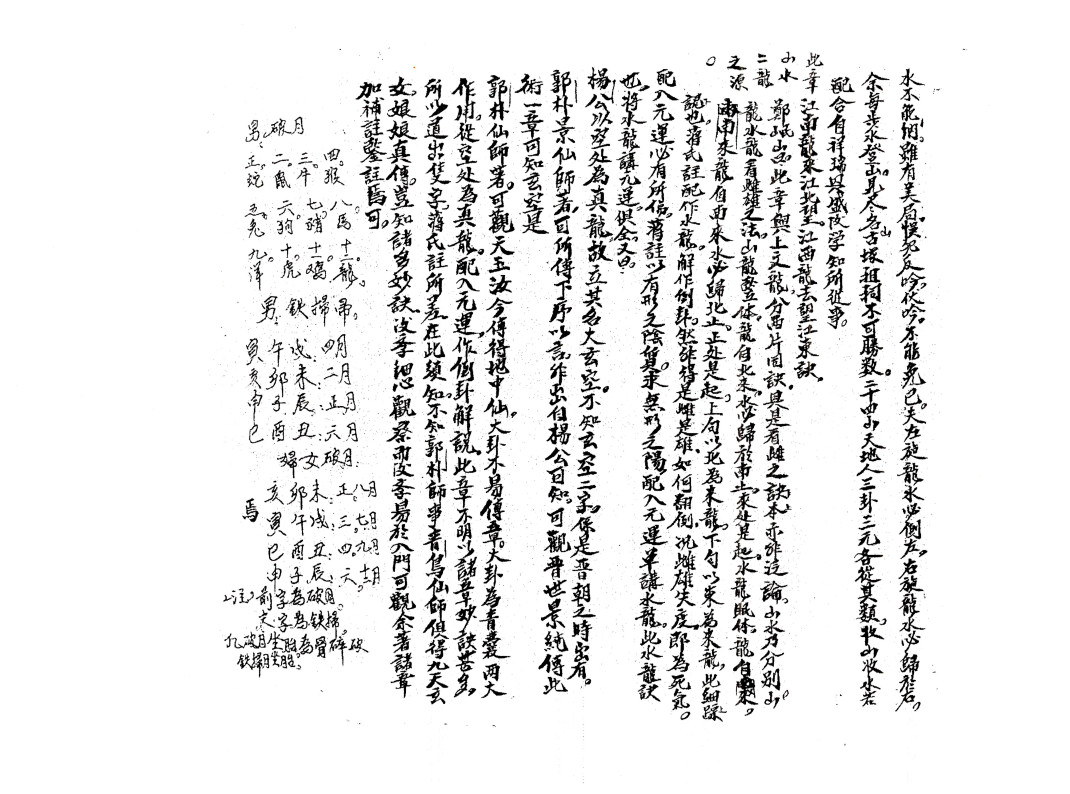 水不能納。雖有美局。悞犯反吟。伏吟。不能免已。夫左旋龍水必倒左。右旋龍水必歸右。
余每步水登山。見尽名山古塚祖祠不可勝数。二十四山天地人三卦三元各從其類。收山收水若
配合自祥瑞兴盛後学知所從事。
此章江南龍來江北望。江西龍去望江東訣。
山水二龍之源
鄭岷山曰此章與上文龍分両片同訣。具是看雌之訣本亦非泛論。山水乃分別山
龍水龍看雌雄之法。山龍竪体。龍自北來。水必歸於南上來处是起。水龍眠体。龍自
南來龍自南來水必歸北上。止处是起。上句以北為來龍。下句以東為來龍。此細踩
認也。蒋氏註配作水龍。解作倒卦。然非待是雌是雄。如何翻倒。况雌雄失度。即為死氣。
配入元運必有所偏。蒋註以有形之陰質。求無形之陽配入元運单講水龍。此水龍訣
也。將水龍講元運俱全。又曰。
楊公以空处為真龍。故立其名大玄空。不知玄空二字。係是晋朝之時出有。
郭朴景仙師著。可所傳下序以言非出自楊公可知。可觀晋世景純傳此
術一章可知玄空是
郭朴仙師著。可觀天玉汝今傳得地中仙。大卦不易傳章。大卦為青囊両大
作用。從空处為真龍。配入元運作倒卦解説。此章不明。以諸章妙訣
所以道出隻字蒋氏註所差在此須知。不知郭朴師事青烏仙師俱得九天玄
女娘娘真傳。豈知諸多妙訣。汝季細心觀察而後季易於入門可觀余著諸章
加補註鑿註焉可。
男。破月
正。二。三。四。
蛇 鼠 牛 猴
五。六。七。八。
兔 狗 猪 馬
九。十。十一。十二。
洋 虎 鶏 龍
男。鉄掃帚。
寅午戌:四月
亥卯未:二月
申子辰:正月
巳酉丑:六月
婦女破月
亥卯未:正八月
寅午戌:三七月
巳酉丑:四九月
申子辰:六十二月
焉
(注)前字為破月。
文字為鉄掃。
凡破月坐胎為骨碎破
鉄掃坐胎。